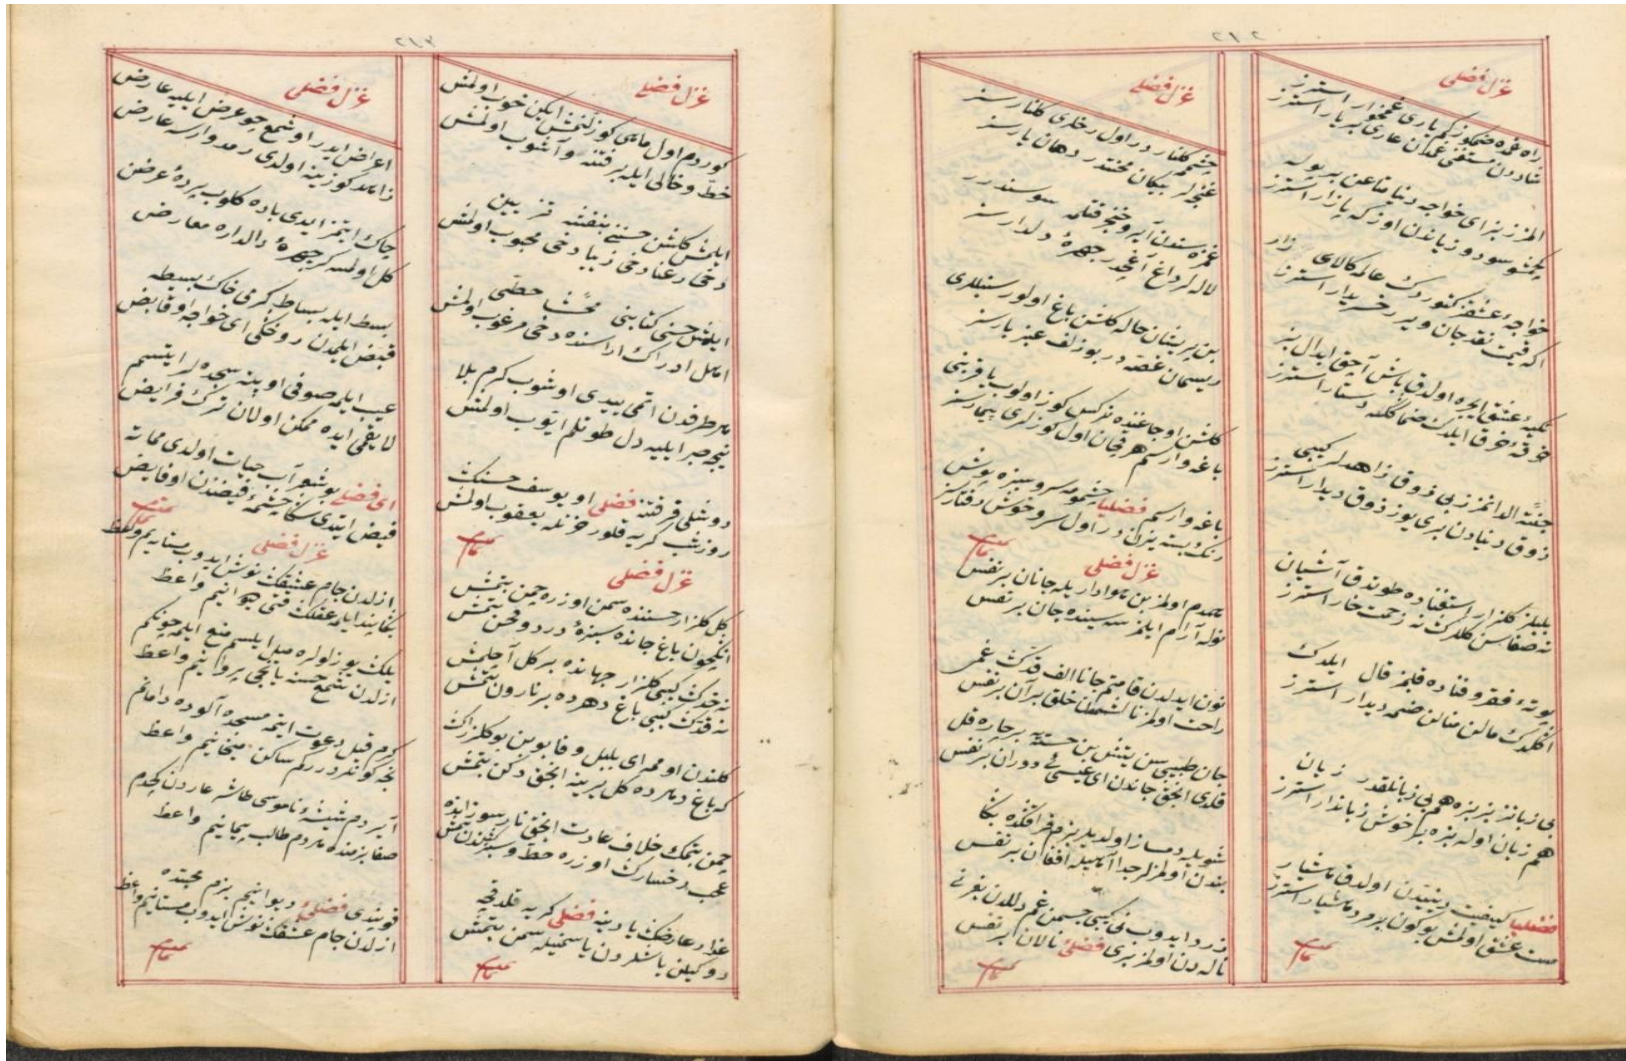 ٢١٢
غزل فضلی
راه غمده ضمكوز كم ياری غمخوار استرز
شاددن مستغنی غمدن عاری بر يار استرز
المزز بز ای خواجه دنيا متاعن بر پوله
چكمشوز سود و زياندن اوزكه بازار استرز
خواجۀ عشقز كتوردك عالمه كالای زار
اكه قيمت نقد جان ويرر خريدار استرز
تكيۀ عشق ايچره اولدق باش آچق ابدال بز
خرقه خرق ايلدك
جنته الدانمز بی ذوق زاهدلر كبی
ذوق دنيادن بری يوز ذوق ديدار استرز
بلبلز كلزار استغناده طوتدق آشيان
نه صفاسن كلدك نه زحمت خار استرز
بوتۀ فقر و فناده قلبمز قال ايلدك
اكلدك مالن منالن ديدار استرز
بی زبانز بز بزه هم بی زبانلقدر زبان
هم زبان اوله بزه بر خوش زباندار استرز
فضليا كيفيت دنيادن اولدق
مست عشق اولمش بوكون بر مرد هشيار استرز
تمام
غزل فضلی
چشمم كلنار در اول رخلری كلنارسز
غنچه لر پيكان محنتدر دهان يارسز
غمزه سندن آيرو خنجر قتلمه سوسندرر
لاله لر داغ اغيدر چهرۀ دلدارسز
بن پريشان حاله كلشن باغ اولور سنبللری
ريسمان غصه در بو زلف عنبر بارسز
كلشن اوجاغنده نركس كوز اولوب
باغه وارسم هر فچان اول كوزلری بيمارسز
باغه وارسم فضليا چشمومه سرو سبزه پوش
رنك بسته نيزه در اول سرو خوش رفتارسز
تمام
غزل فضلی
همدم اولمز بن هواداريله جانان بر نفس
نوله آرام ايلمز سه سينده جان بر نفس
نون ايدلدن قامتم جانا الف قدك غمی
راحت اولمز نالشمدن خلق بر آن بر نفس
جان طبيبی سن يتش بن خسته يه بر چاره قل
قلدی انجق جاندن ای عيسی دوران بر نفس
شويله دمساز اولديلر بزم فراقكده بكا
بندن اولمزلر جدا آه ايله افغان بر نفس
زرد ايدوب نی كبی جسمن غم دللدن بغرنی
ناله دن اولمز بری فضلی نالان بر نفس
تمام
٢١٣
غزل فضلی
كوردم اول ماهی كوزلنمش ايكن خوب اولمش
خط و خالی ايله بر فتنه و آشوب اولمش
ايلمش كلشن حسننی بنفشه تزيين
دخی رعنا دخی زيبا دخی محبوب اولمش
ايلمش حسنی كتابنی محشا خطی
اهل ادراك اراسنده دخی مرغوب اولمش
هر طرفدن اتمی بيدی اوشوب كرم بلا
نيجه صبر ايليه دل طوتلم ايوب اولمش
دوشلی فرقتنه فضلی او يوسف حسنك
روز شب كريه قلور حزنله يعقوب اولمش
تمام
غزل فضلی
كل كلزار حسننده سمن اوزره چمن بتمش
انكچون باغ جانده سبزۀ درد و محن بتمش
نه خدك كبی كلزار جهانده بر كل آچلمش
نه قدك كبی باغ دهرده بر نارون بتمش
كلندن اومه ای بلبل وفا بويين بو كلزارك
كه باغ دهرده كل يرينه انجق دكن بتمش
چمن بتمك خلاف عادت انجق نار سوزانده
عجب رخسارك اوزره خط و سبزك ندن بتمش
عذار عارضك يادينه فضلی كريه قلدقچه
دوكيلن ياشلردن ياسمنيله سمن بتمش
تمام
غزل فضلی
اعراض ايدر اوشمع چو عرض ايليه عارض
زاهد كوزينه اولدی رمد وارسه عارض
چاك ايتمز ايدی باده كلوب پردۀ عرضن
كل اولمسه كر چهرۀ دلداره معارض
بسط ايله بساط كرمی خاك بسيطه
قبض ايلمدن روحكی ای خواجه او قابض
عيب ايلمه صوفی اوپينه سجده لر ايتسم
لايقمی ايده ممكن اولان ترك فرايض
ای فضلی بو شعر آب حيات اولدی مماته
فيض ايتدی سكا چشمۀ فيضندن او فايض
تمام
غزل فضلی
ازلدن جام عشقك نوش ايدوب مستانيم واعظ
بكا پند ايلمه عقلك قنی ديوانيم واعظ
يلك يوز اولوره ميل ايلسم منع ايلمه چونكم
ازلدن شمع حسنه ياغمی پروانيم واعظ
كرم قيل دعوت ايتمه مسجده آلوده دامانم
نيجه كوندر درركم ساكن ميخانيم واعظ
آيردم شيشۀ ناموسی طاشه عاردن كچدم
صفا بزمنده هر دم طالب پيمانيم واعظ
قويندی فضلی ديوانيم بزم محبتده
ازلدن جام عشقك نوش ايدوب مستانيم واعظ
تمام